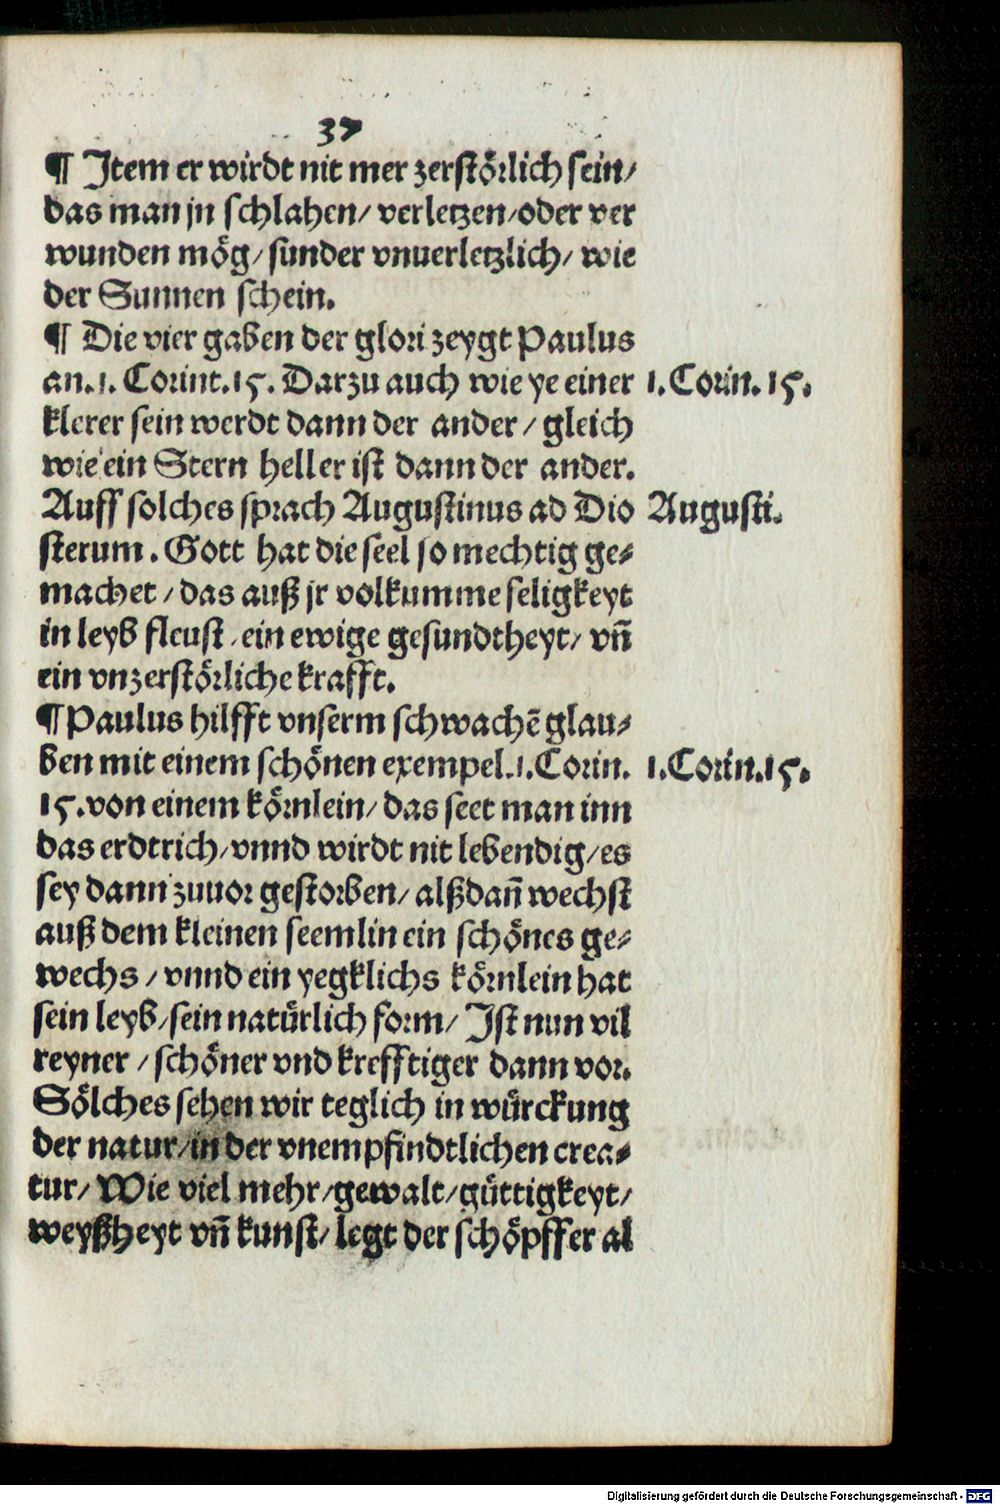 37
¶ Jtem er wirdt nit mer zerstörlich sein/
das man jn schlahen/ verletzen/oder ver
wunden mög/ sunder vnuerletzlich/ wie
der Sunnen schein.
¶ Die vier gaben der glori zeygt Paulus
an.1. Corint.15. Darzu auch wie ye einer
1. Corin. 15.
klerer sein werdt dann der ander/ gleich
wie ein Stern heller ist dann der ander.
Auff solches sprach Augustinus ad Dio
Augusti.
sterum. Gott hat die seel so mechtig ge-
machet/ das auß jr volkumme seligkeyt
in leyb fleust/ein ewige gesundtheyt/ vñ
ein vnzerstörliche krafft.
¶Paulus hilfft vnserm schwachẽ glau-
ben mit einem schönen exempel.1.Corin.
1.Corin.15.
15.von einem körnlein/ das seet man inn
das erdtrich/vnnd wirdt nit lebendig/es
sey dann zuuor gestorben/ alßdañ wechst
auß dem kleinen seemlin ein schönes ge-
wechs/ vnnd ein yegklichs körnlein hat
sein leyb/sein natürlich form/ Jst nun vil
reyner/ schöner vnd krefftiger dann vor.
Sölches sehen wir teglich in würckung
der natur/in der vnempfindtlichen crea-
tur/ Wie viel mehr/gewalt/güttigkeyt/
weyßheyt vñ kunst/ legt der schöpffer al
Digitalisierung gefördert durch die Deutsche Forschungsgemeinschaft - DFG